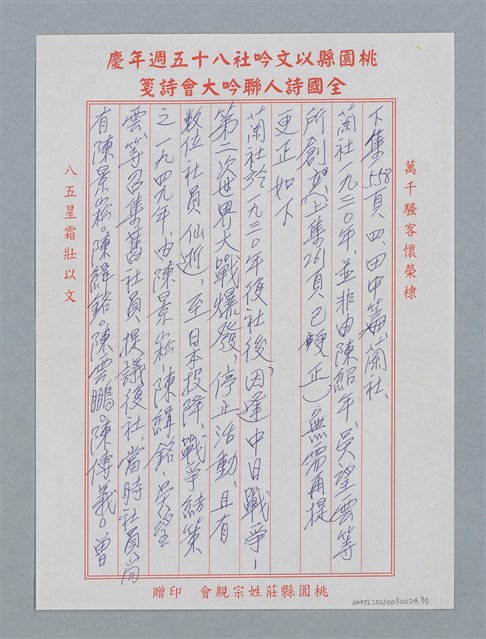 桃園縣以文吟社八十五週年慶
全國詩人聯吟大會詩箋
萬千騷客懷榮棣
下集558頁、四、田中蘭社、
蘭社一九三０年、並非由陳紹年、吳望雲等
所創(如上集261頁、已更正)無需再提
更正如下
蘭社於一九三０年復社後、因逢中日戰爭、
第二次世界大戰爆發、停止活動、且有
数位社員仙逝、至日本投降、戰爭結策
之一九四九年、由陳景崧、陳緝銘、吳望
雲等召集舊社員提議復社、當時社員尚
有陳景崧。陳緝銘。陳雲鵬。陳傳義。曾
八五星霜壯以文
桃園縣莊姓宗親會 印贈
NMTL20210030024 3/3